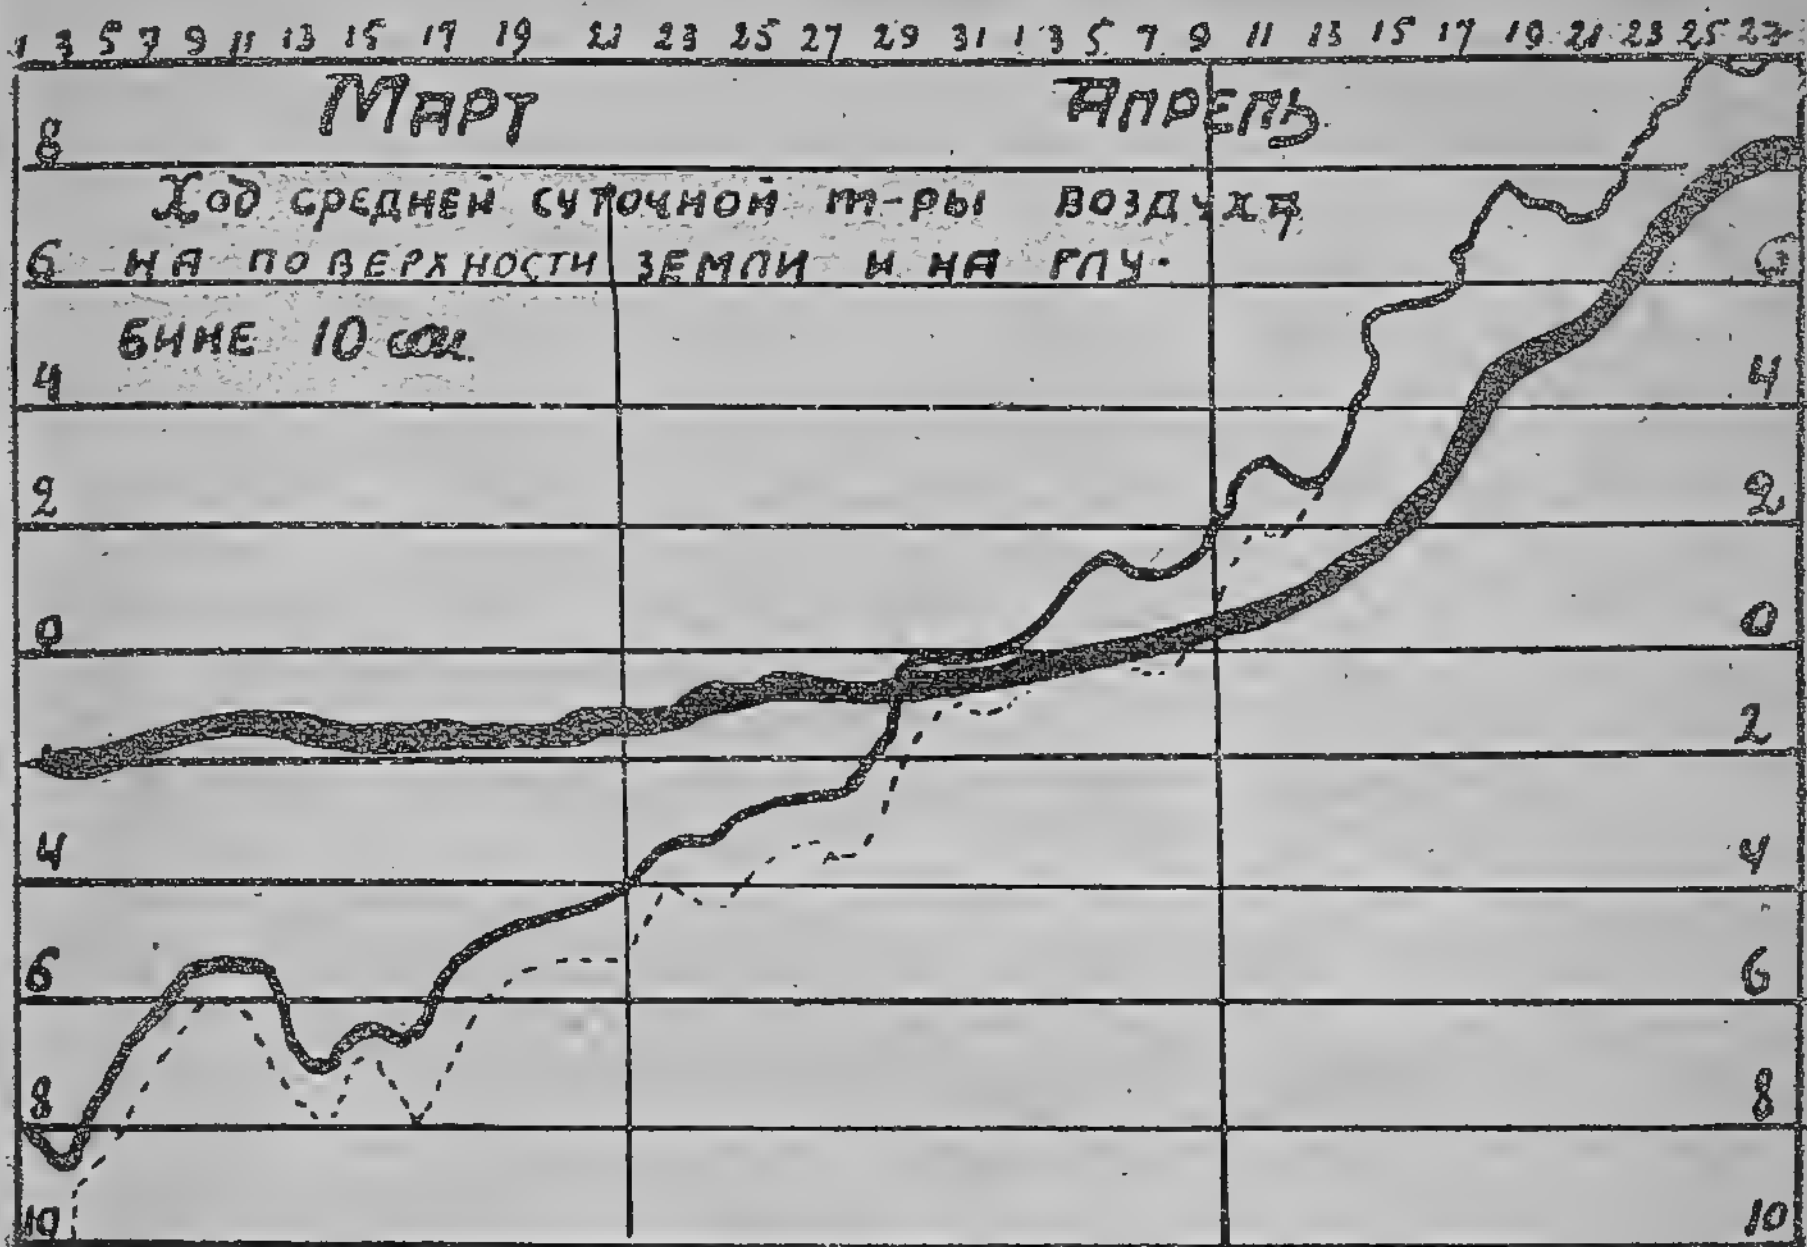 1 3 5 7 9 11 13 15 17 19 21 23 25 27 29 31 1 3 5 7 9 11 13 15 17 19 21 23 25 27
Март Апрель
8
Ход средней суточной т-ры воздуха
6 на поверхности земли и на глу-
бине 10 см.
4 4
2 2
0 0
2
4 4
6 6
8 8
10 10